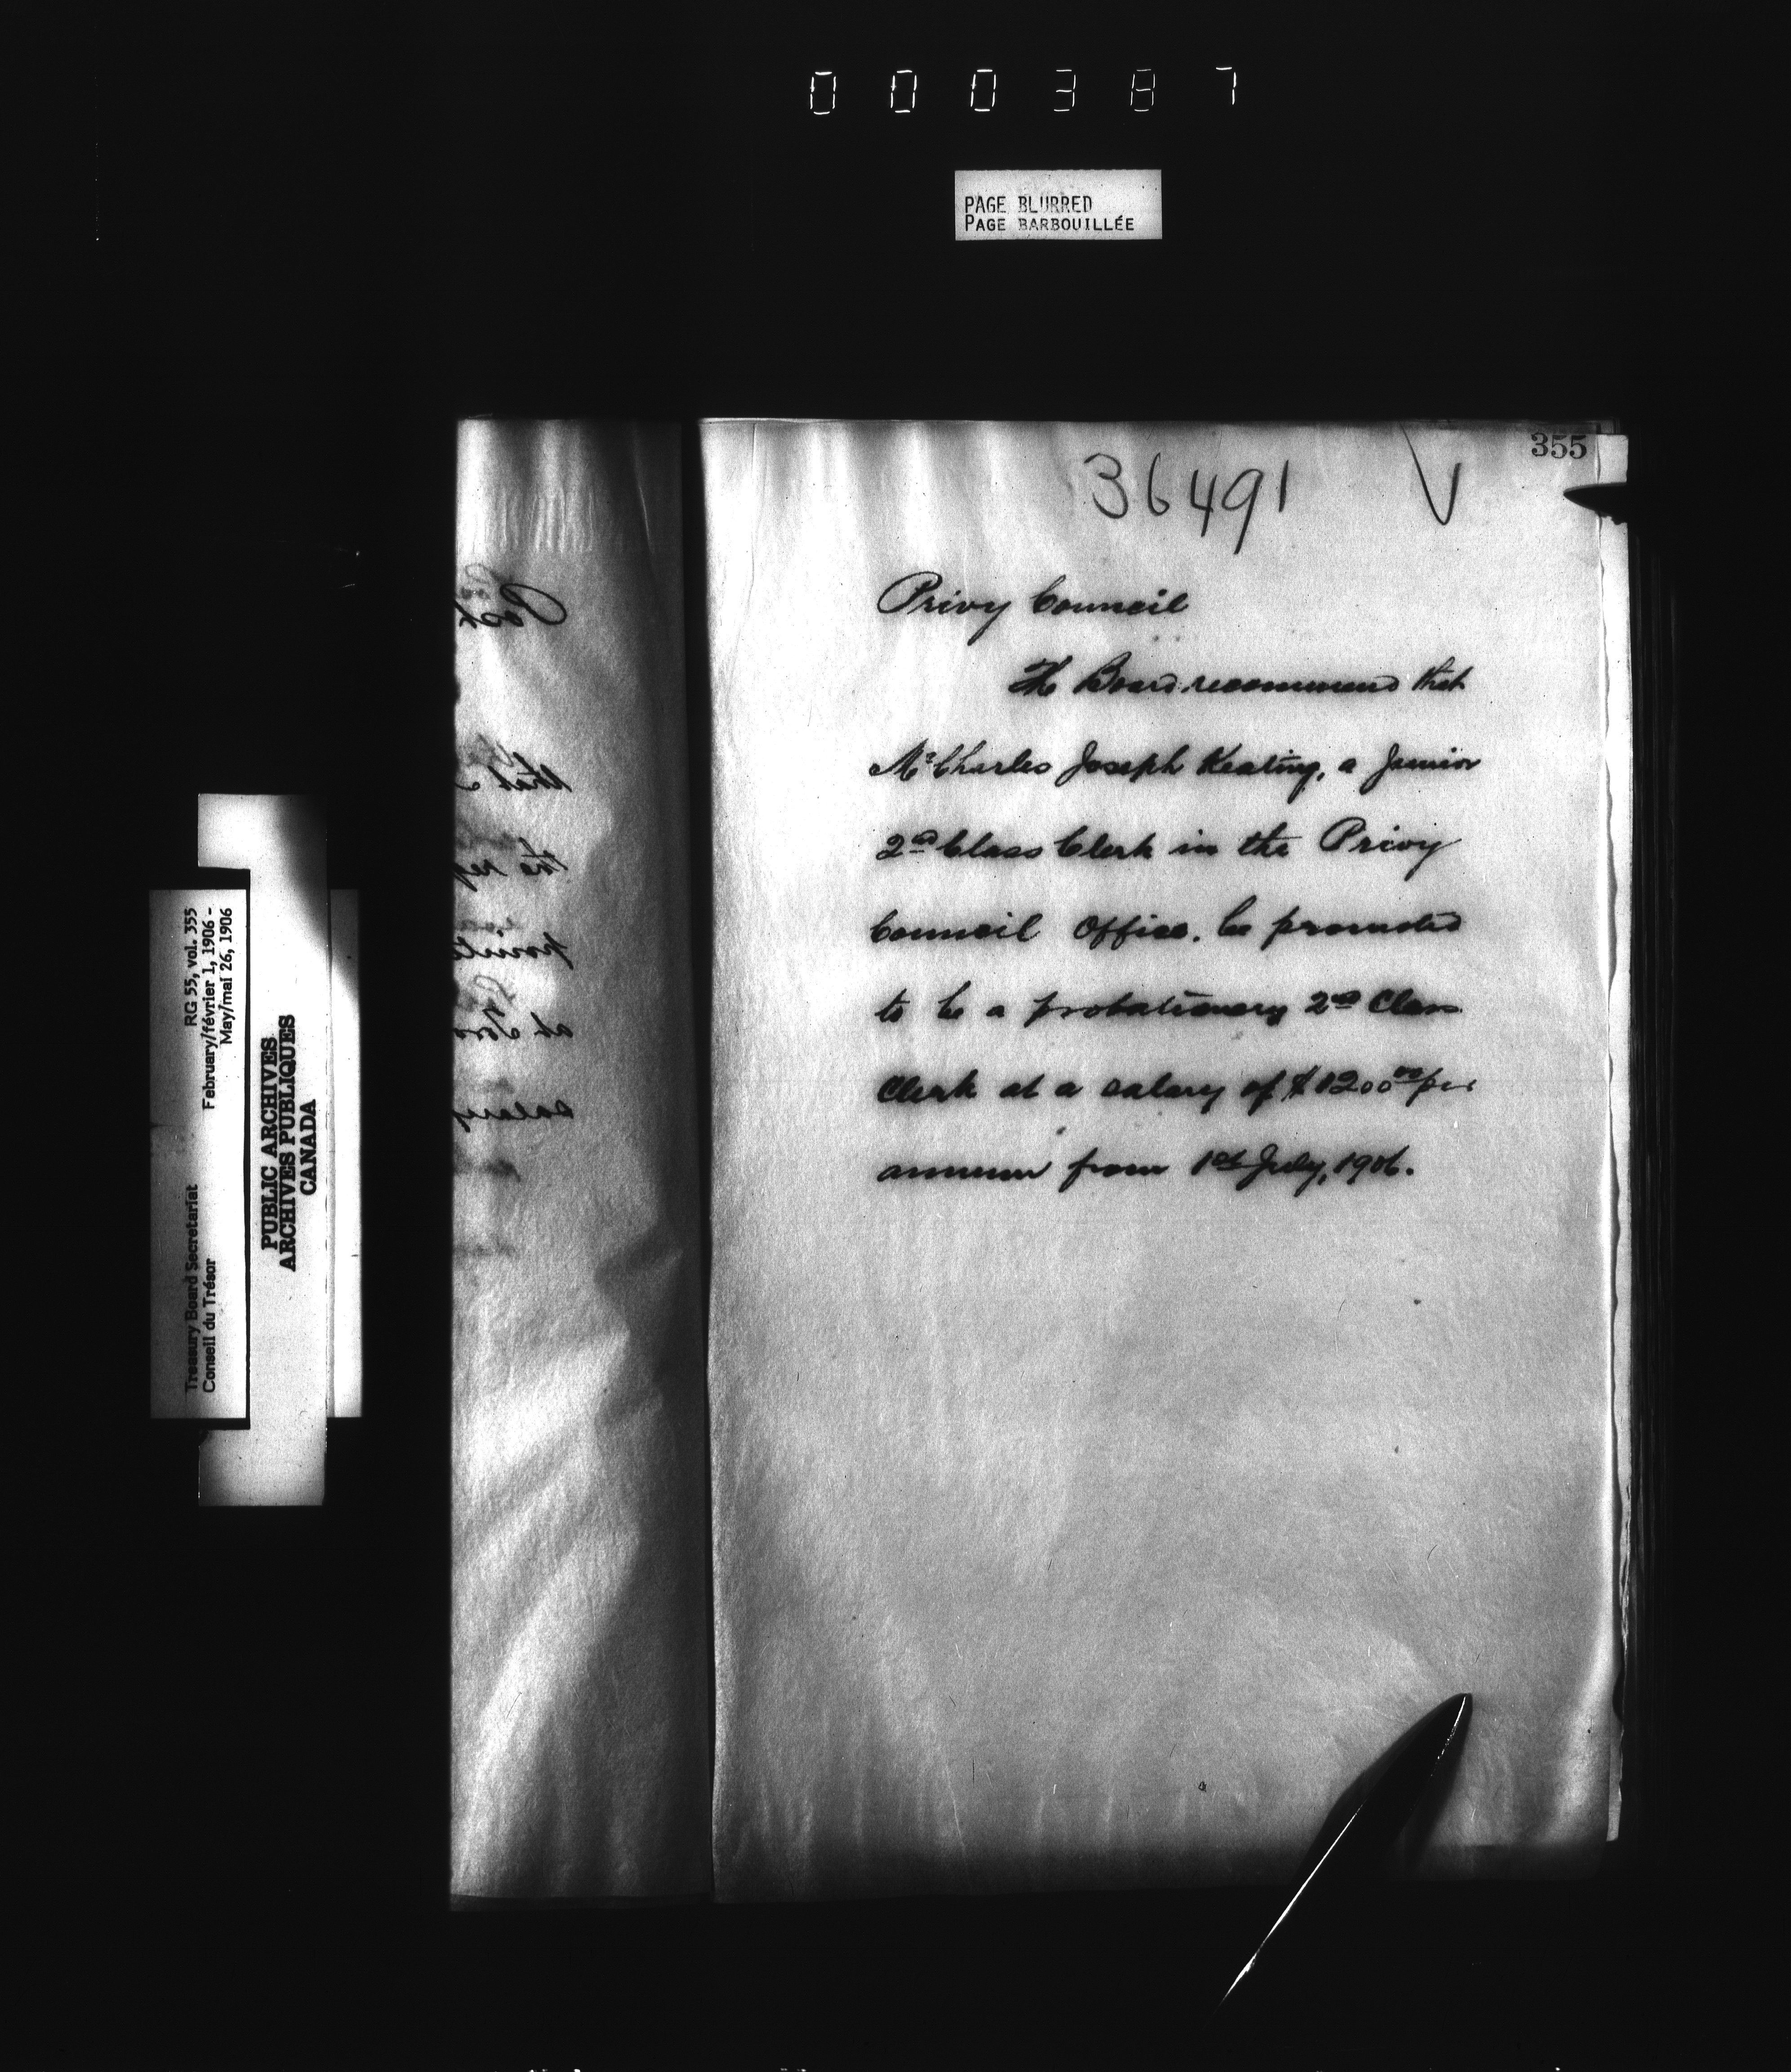 000387
PAGE BLURRED
PAGE BARBOUILLÉE
355
36491
Privy Council
The Board recommend that
Mr Charles Joseph Keating, a Junior
2nd Class Clerk in the Privy
Council Office, be promoted
to be a probationary 2nd Class
Clerk at a salary of $1200.00 per
annum from 1st July, 1906.
Post
that
the rep
at Toro
salary
Treasury Board Secretariat RG 55, vol. 355
Conseil du Trésor February/février 1, 1906 -
May/mai 26, 1906
PUBLIC ARCHIVES
ARCHIVES PUBLIQUES
CANADA